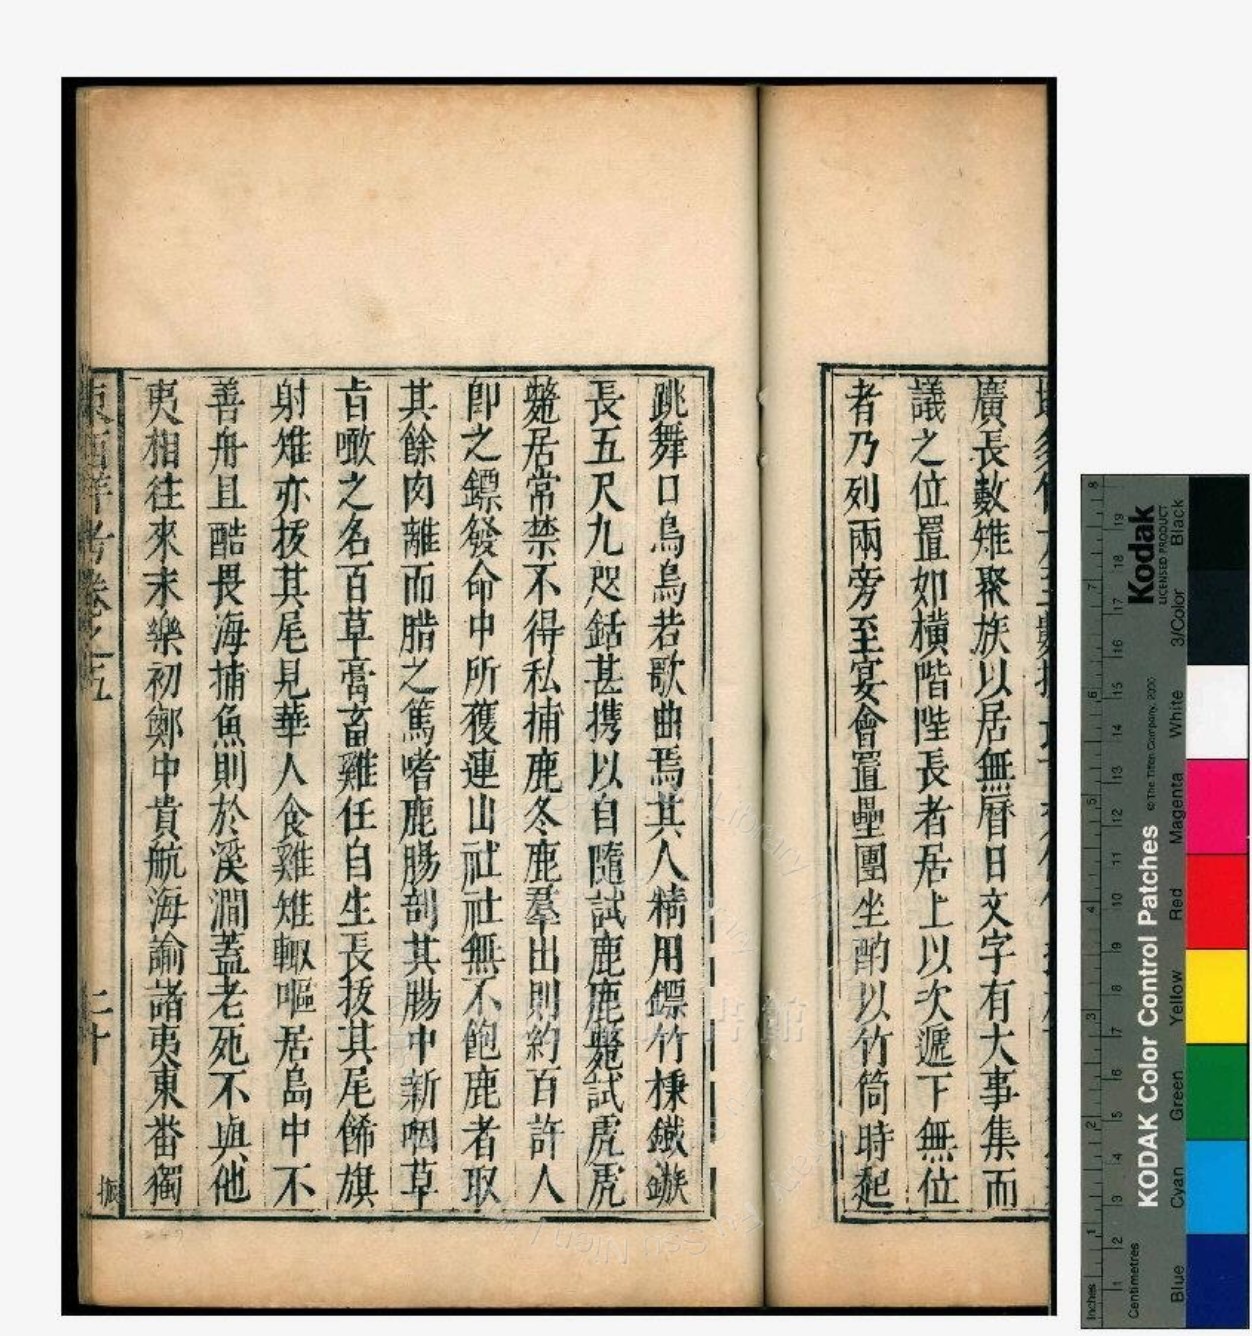 廣長數雉聚族以居無曆日文字有大事集而
議之位置如橫階陛長者居上以次遞下無位
者乃列兩旁至宴會置壘團坐酌以竹筒時起
跳舞口烏烏若歌曲焉其人精用鏢竹棅鐵鏃
長五尺九咫銛甚携以自隨試鹿鹿斃試虎虎
斃居常禁不得私捕鹿冬鹿羣出則約百許人
卽之鏢發命中所獲連山社社無不飽鹿者取
其餘肉離而腊之篤嗜鹿腸剖其腸中新咽草
旨噉之名百草膏畜雞任自生長拔其尾飾旗
射雉亦拔其尾見華人食雞雉輙嘔居島中不
善舟且酷畏海捕魚則於溪澗蓋老死不與他
夷相往來末樂初鄭中貴航海諭諸夷東番獨
東西洋考卷之五
二十
振
Kodak
LICENSED PRODUCT
KODAK Color Control Patches
© The Tiffen Company, 2000
Blue Cyan Green Yellow Red Magenta White 3/Color Black
Inches 1 2 3 4 5 6 7 8
Centimetres 1 2 3 4 5 6 7 8 9 10 11 12 13 14 15 16 17 18 19